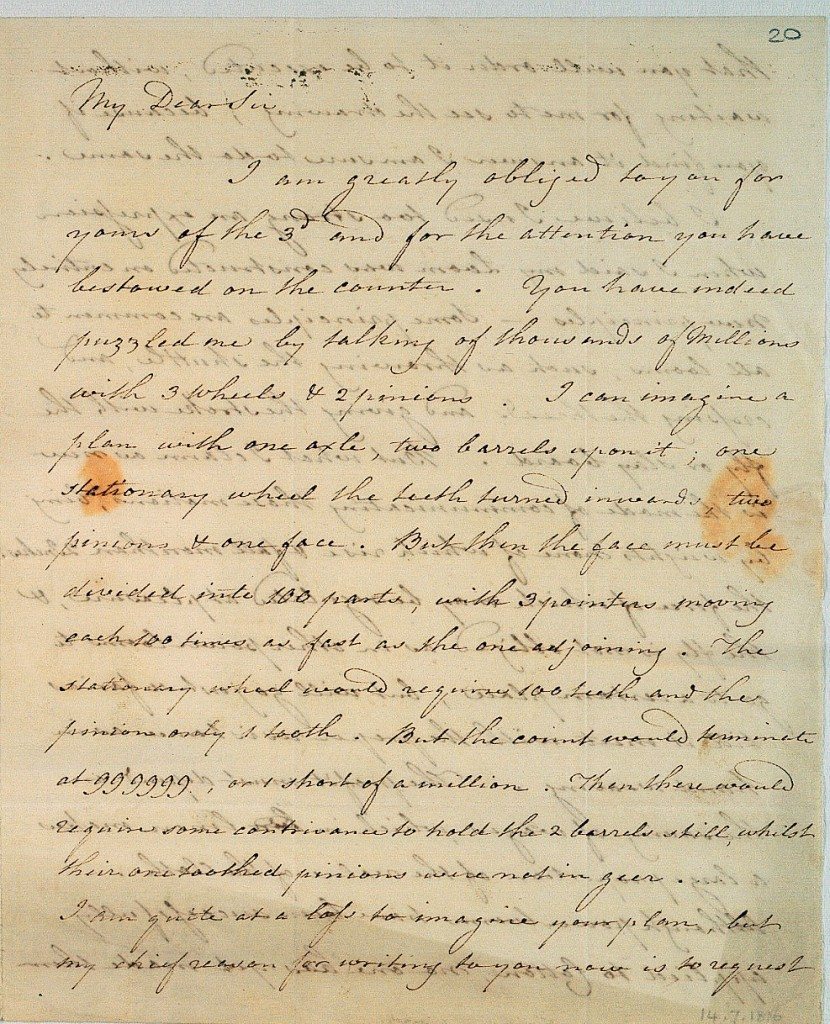 20
My Dear Sir
I am greatly obliged to you for
yours of the 3d and for the attention you have
bestowed on the counter. You have indeed
puzzled me by talking of thousands of Millions
with 3 wheels & 2 pinions. I can imagine a
plan with one axle two barrels upon it; one
stationary wheel the teeth turned inwards, two
pinions & one face. But then the face must be
divided into 100 parts, with 3 pointers moving
each 100 times as fast as the one adjoining. The
stationary wheel would require 100 teeth and the
pinion only 1 tooth. But the count would terminate
at 999999, or 1 short of a million. Then there would
require some contrivance to hold the 2 barrels still, whilst
their one toothed pinions were not in geer.
I am quite at a loss to imagine your plan, but
my chief reason for writing to you now is to request